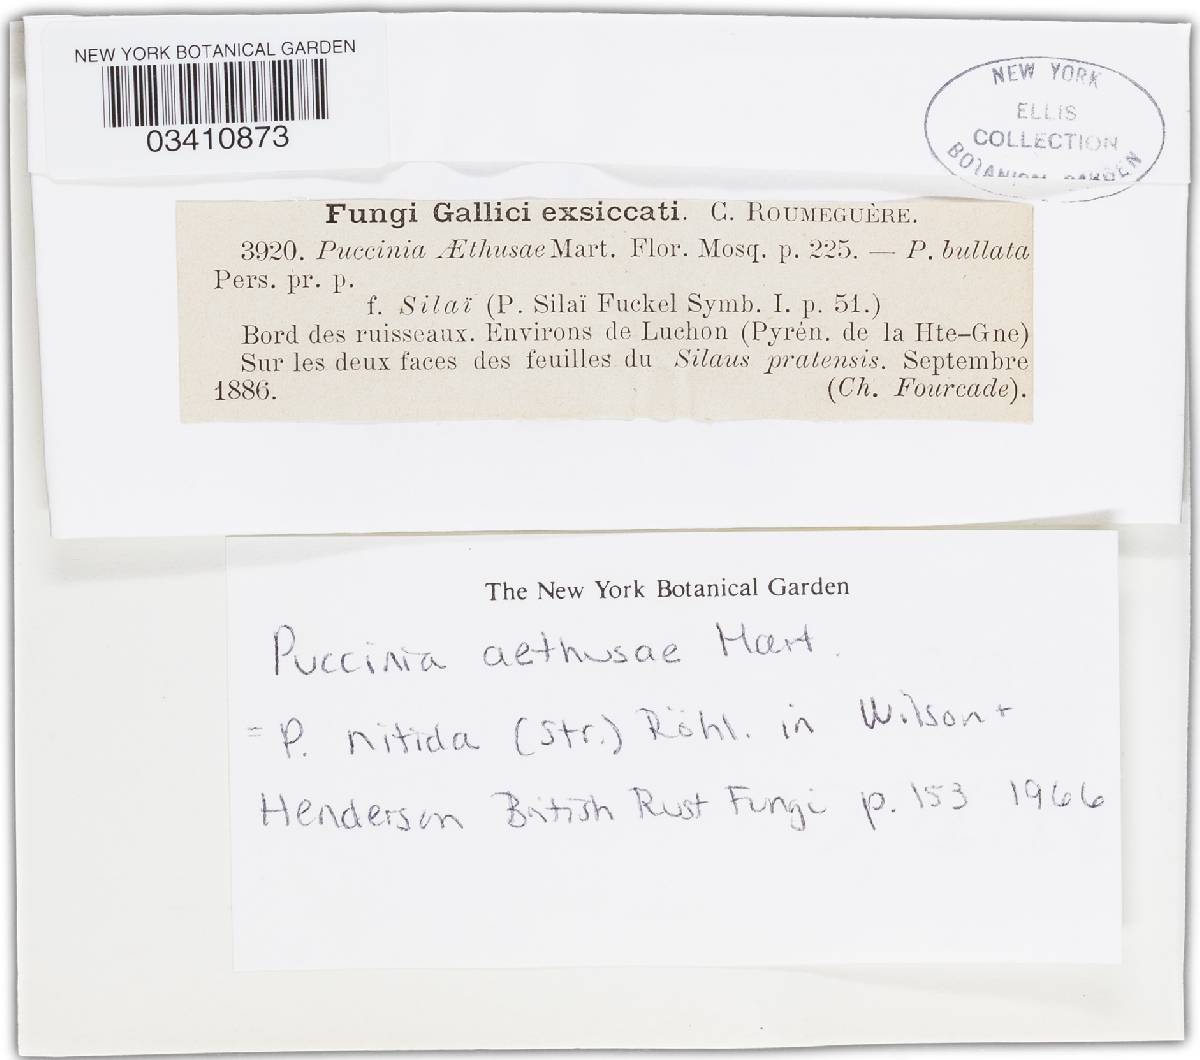 NEW YORK BOTANICAL GARDEN
03410873
NEW YORK
ELLIS
COLLECTION
BOTANICAL GARDEN
Fungi Gallici exsiccati. C. ROUMEGUÈRE.
3920. Puccinia Æthusae Mart. Flor. Mosq. p. 225. — P. bullata
Pers. pr. p.
f. Silaï (P. Silaï Fuckel Symb. I. p. 51.)
Bord des ruisseaux. Environs de Luchon (Pyrén. de la Hte-Gne)
Sur les deux faces des feuilles du Silaus pratensis. Septembre
1886. (Ch. Fourcade).
The New York Botanical Garden
Puccinia aethusae Mart.
= P. nitida (Str.) Röhl. in Wilson +
Henderson British Rust Fungi p. 153 1966